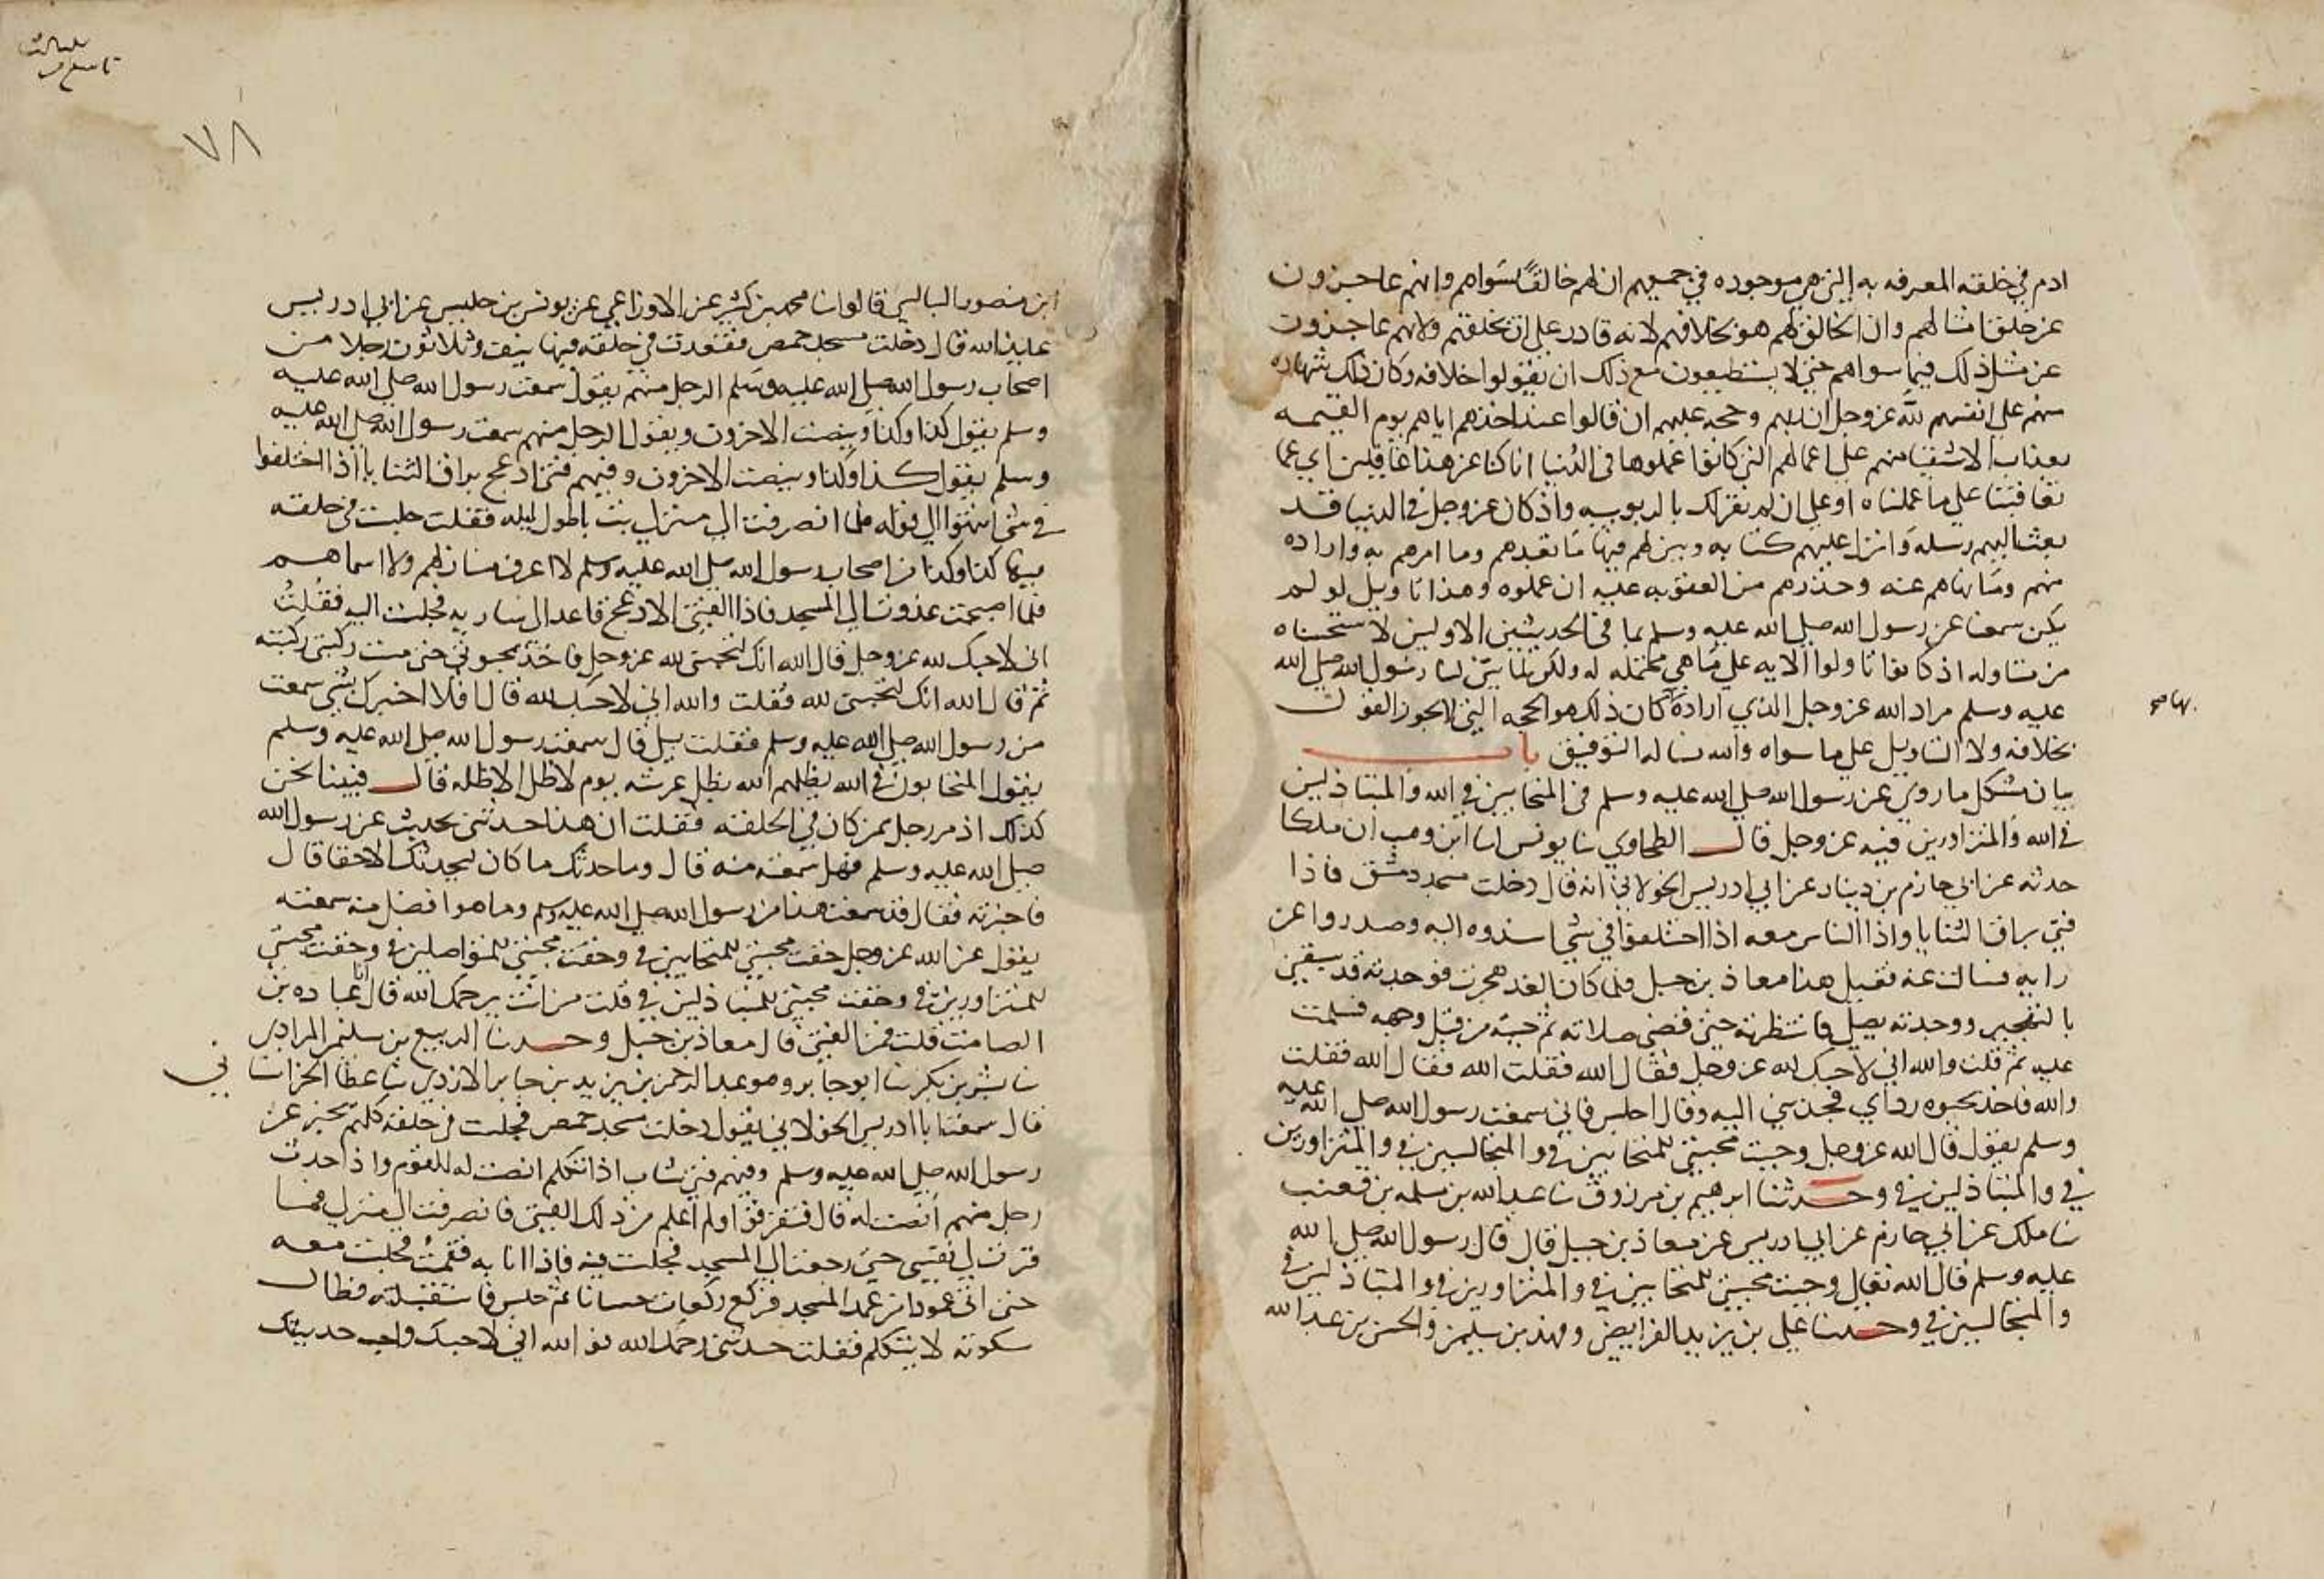 ادم في خلقه المعرفه به التي هي موجوده في جميعهم ان لهم خالقًا سواهم وانهم عاجزون
عن خلق امثالهم وان الخالق لهم هو بخلافهم لانه قادر على ان يخلقهم ولانهم عاجزون
عن مثل ذلك فيما سواهم حتى لا يستطيعون مع ذلك ان يقولوا خلافه وكان ذلك شهاده
منهم على انفسهم لله عز وجل انه ربهم وحجه عليهم ان قالوا عند اخذهم اياهم يوم القيمه
بعذاب الاشقيا منهم على اعمالهم التي كانوا عملوها في الدنيا انا كنا عن هذا غافلين اي عما
تعاقبنا على ما عملناه او على ان لم نقر لك بالربوبيه واذ كان عز وجل في الدنيا قد
بعث اليهم رسله وانزل عليهم كتابه وبين لهم فيها ما تعبدهم وما امرهم به واراده
منهم وما نهاهم عنه وحذرهم من العقوبه عليه ان عملوه وهذا تاويل لو لم
يكن سمعنا عن رسول الله صلى الله عليه وسلم بما في الحديثين الاولين لاستحسناه
من متاوله اذ كانوا تاولوا الايه على ما هي محتمله له ولكن لما بين لنا رسول الله صلى الله
عليه وسلم مراد الله عز وجل الذي اراده كان ذلك هو الحجه التي لا يجوز القول
بخلافه ولا التاويل على ما سواه والله نساله التوفيق باب
بيان مشكل ما روي عن رسول الله صلى الله عليه وسلم في المتحابين في الله والمتباذلين
في الله والمتزاورين فيه عز وجل قال الطحاوي نا يونس انا ابن وهب ان ملكا
حدثه عن ابي حازم بن دينار عن ابي ادريس الخولاني انه قال دخلت مسجد دمشق فاذا
فتى براق الثنايا واذا الناس معه اذا اختلفوا في شي اسندوه اليه وصدروا عن
رايه فسالت عنه فقيل هذا معاذ بن جبل فلما كان الغد هجرت فوجدته قد سبقني
بالتهجير ووجدته يصلي فانتظرته حتى قضى صلاته ثم جئته من قبل وجهه فسلمت
عليه ثم قلت والله اني لاحبك لله عز وجل فقال الله فقلت الله فقال الله فقلت
والله فاخذ بحبوه رداي فجذبني اليه وقال اجلس فاني سمعت رسول الله صلى الله عليه
وسلم يقول قال الله عز وجل وجبت محبتي للمتحابين في والمتجالسين في والمتزاورين
في والمتباذلين في وحدثنا ابرهيم بن مرزوق نا عبد الله بن مسلمه بن قعنب
نا ملك عن ابي حازم عن ابي ادريس عن معاذ بن جبل قال قال رسول الله صلى الله
عليه وسلم قال الله تعالى وجبت محبتي للمتحابين في والمتزاورين في والمتباذلين في
والمتجالسين في وحدثنا علي بن يزيد الفرايضي وفهد بن سليمن والحسن بن عبد الله
٧٨
ابن منصور البالسي قالوا نا محمد بن كثير عن الاوزاعي عن يونس بن حلبس عن ابي ادريس
عايذ الله قال دخلت مسجد حمص فقعدت في حلقه فيها نيف وثلاثون رجلا من
اصحاب رسول الله صلى الله عليه وسلم الرجل منهم يقول سمعت رسول الله صلى الله عليه
وسلم يقول كذا وكذا وينصت الاخرون ويقول الرجل منهم سمعت رسول الله صلى الله عليه
وسلم يقول كذا وكذا وينصت الاخرون وفيهم فتى ادعج براق الثنايا اذا اختلفوا
في شي انتهوا الى قوله فلما انصرفت الى منزلي بت باطول ليله فقلت جلست في حلقه
فيها كذا وكذا من اصحاب رسول الله صلى الله عليه وسلم لا اعرف منازلهم ولا اسماهم
فلما اصبحت غدوت الى المسجد فاذا الفتى الادعج قاعد الى ساريه فجلست اليه فقلت
اني لاحبك لله عز وجل قال الله انك لتحبني لله عز وجل فاخذ بحبوتي حتى مست ركبتي ركبته
ثم قال الله انك لتحبني لله فقلت والله اني لاحبك لله قال افلا اخبرك بشي سمعت
من رسول الله صلى الله عليه وسلم فقلت بلى قال سمعت رسول الله صلى الله عليه وسلم
يقول المتحابون في الله يظلهم الله بظل عرشه يوم لا ظل الا ظله قال فبينا نحن
كذلك اذ مر رجل ممن كان في الحلقه فقلت ان هذا حدثني بحديث عن رسول الله
صلى الله عليه وسلم فهل سمعته منه قال وما حدثك ما كان ليحدثك الا حقا قال
فاخبرته فقال قد سمعت هذا من رسول الله صلى الله عليه وسلم وما هو افضل منه سمعته
يقول عن الله عز وجل حقت محبتي للمتحابين في وحقت محبتي للمتواصلين في وحقت محبتي
للمتزاورين في وحقت محبتي للمتباذلين في قلت من انت يرحمك الله قال انا عباده بن
الصامت قلت فمن الفتى قال معاذ بن جبل وحدثنا الربيع بن سليمن المرادي
نا بشر بن بكر نا ابو جابر وهو عبد الرحمن بن يزيد بن جابر الازدي نا عطا الخراساني
قال سمعت ابا ادريس الخولاني يقول دخلت مسجد حمص فجلست في حلقه كلهم يخبر عن
رسول الله صلى الله عليه وسلم وفيهم فتى شاب اذا تكلم انصت له القوم واذا حدث
رجل منهم انصت له قال فتفرقوا ولم اعلم من ذلك الفتى فانصرفت الى منزلي فما
قرت لي نفسي حتى رجعت الى المسجد فجلست فيه فاذا انا به فقمت فجلست معه
حتى اتى عمودا من عمد المسجد فركع ركعات حسانا ثم جلس فاستقبلته فطال
سكوته لا يتكلم فقلت حدثني رحمك الله فوالله اني لاحبك واحب حديثك